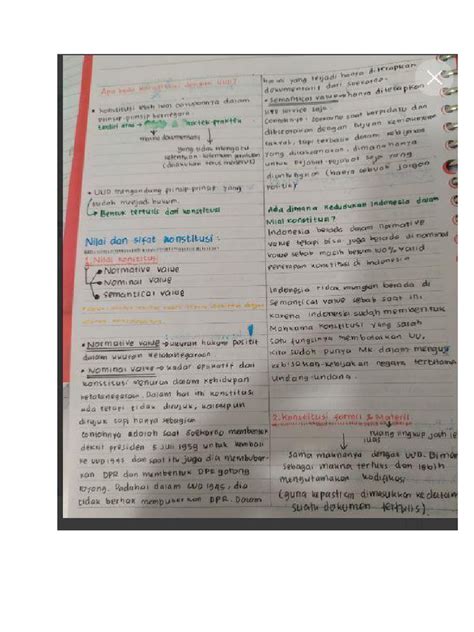 Apa beda konstitusi dengan UUD?
• Konstitusi lebih luas cakupannya dalam
prinsip-prinsip bernegara.
terdiri atas → praktek-praktek
yang tidak mengacu
ketentuan-ketentuan penulisan
• UUD mengandung prinsip-prinsip yang
sudah menjadi hukum.
↳ Bentuk tertulis dari konstitusi
Nilai dan sifat konstitusi :
1. Nilai konstitusi
Normative value
Nominal value
Semantical value
• Normative value → ukuran hukum positif
dalam ukuran ketatanegaraan.
• Nominal value → kadar operatif dari
konstitusi menurun dalam kehidupan
ketatanegaraan. Dalam hal ini konstitusi
ada tetapi tidak dirujuk, kalaupun
dirujuk tapi hanya sebagian.
contohnya adalah saat Soekarno membentuk
dekrit presiden 5 Juli 1959 untuk kembali
ke UUD 1945 dan saat itu juga dia membubar-
kan DPR dan membentuk DPR gotong
royong. Padahal dalam UUD 1945, dia
tidak berhak membubarkan DPR. Dalam
hal ini yang terjadi hanya diterapkan
dokumentatif dari Soekarno.
• Semantical value → hanya diterapkan
lips service saja.
Contohnya : Soekarno saat berpidato dan
dibicarakan dengan tujuan kemudahan
taktis, tapi terbatas dalam kerjanya
yang dilaksanakan, dimana hanya
untuk pejabat-pejabat saja yang
diuntungkan (hanya sebuah jargon
politik)
Ada dimana Kedudukan Indonesia dalam
nilai konstitusi?
Indonesia berada dalam normative
value tetapi bisa juga berada di nominal
value sebab masih belum 100% valid
penerapan konstitusi di Indonesia
Indonesia tidak mungkin berada di
Semantical value sebab saat ini
karena Indonesia sudah membentuk
Mahkama konstitusi yang salah
satu fungsinya membatalkan UU,
kita sudah punya MK dalam menguji
kebijakan-kebijakan negara terutama
Undang-undang.
2. Konstitusi formil & Materil.
ruang lingkup
luas
Sama maknanya dengan UUD. Dimana
sebagai makna tertulis dan lebih
mengutamakan kodifikasi
(guna kepastian dimasukkan kedalam
suatu dokumen tertulis).